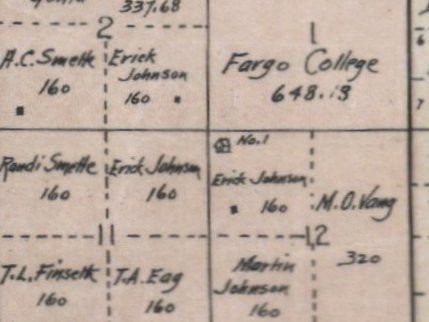 337.68
2
1
6
A.C. Smette
160
Erick
Johnson
160
Fargo College
648.13
7
Randi Smette
160
Erick Johnson
160
No.1
Erick Johnson
160
M.O. Vang
320
11
12
T.L. Finseth
160
T.A. Eag
160
Martin
Johnson
160